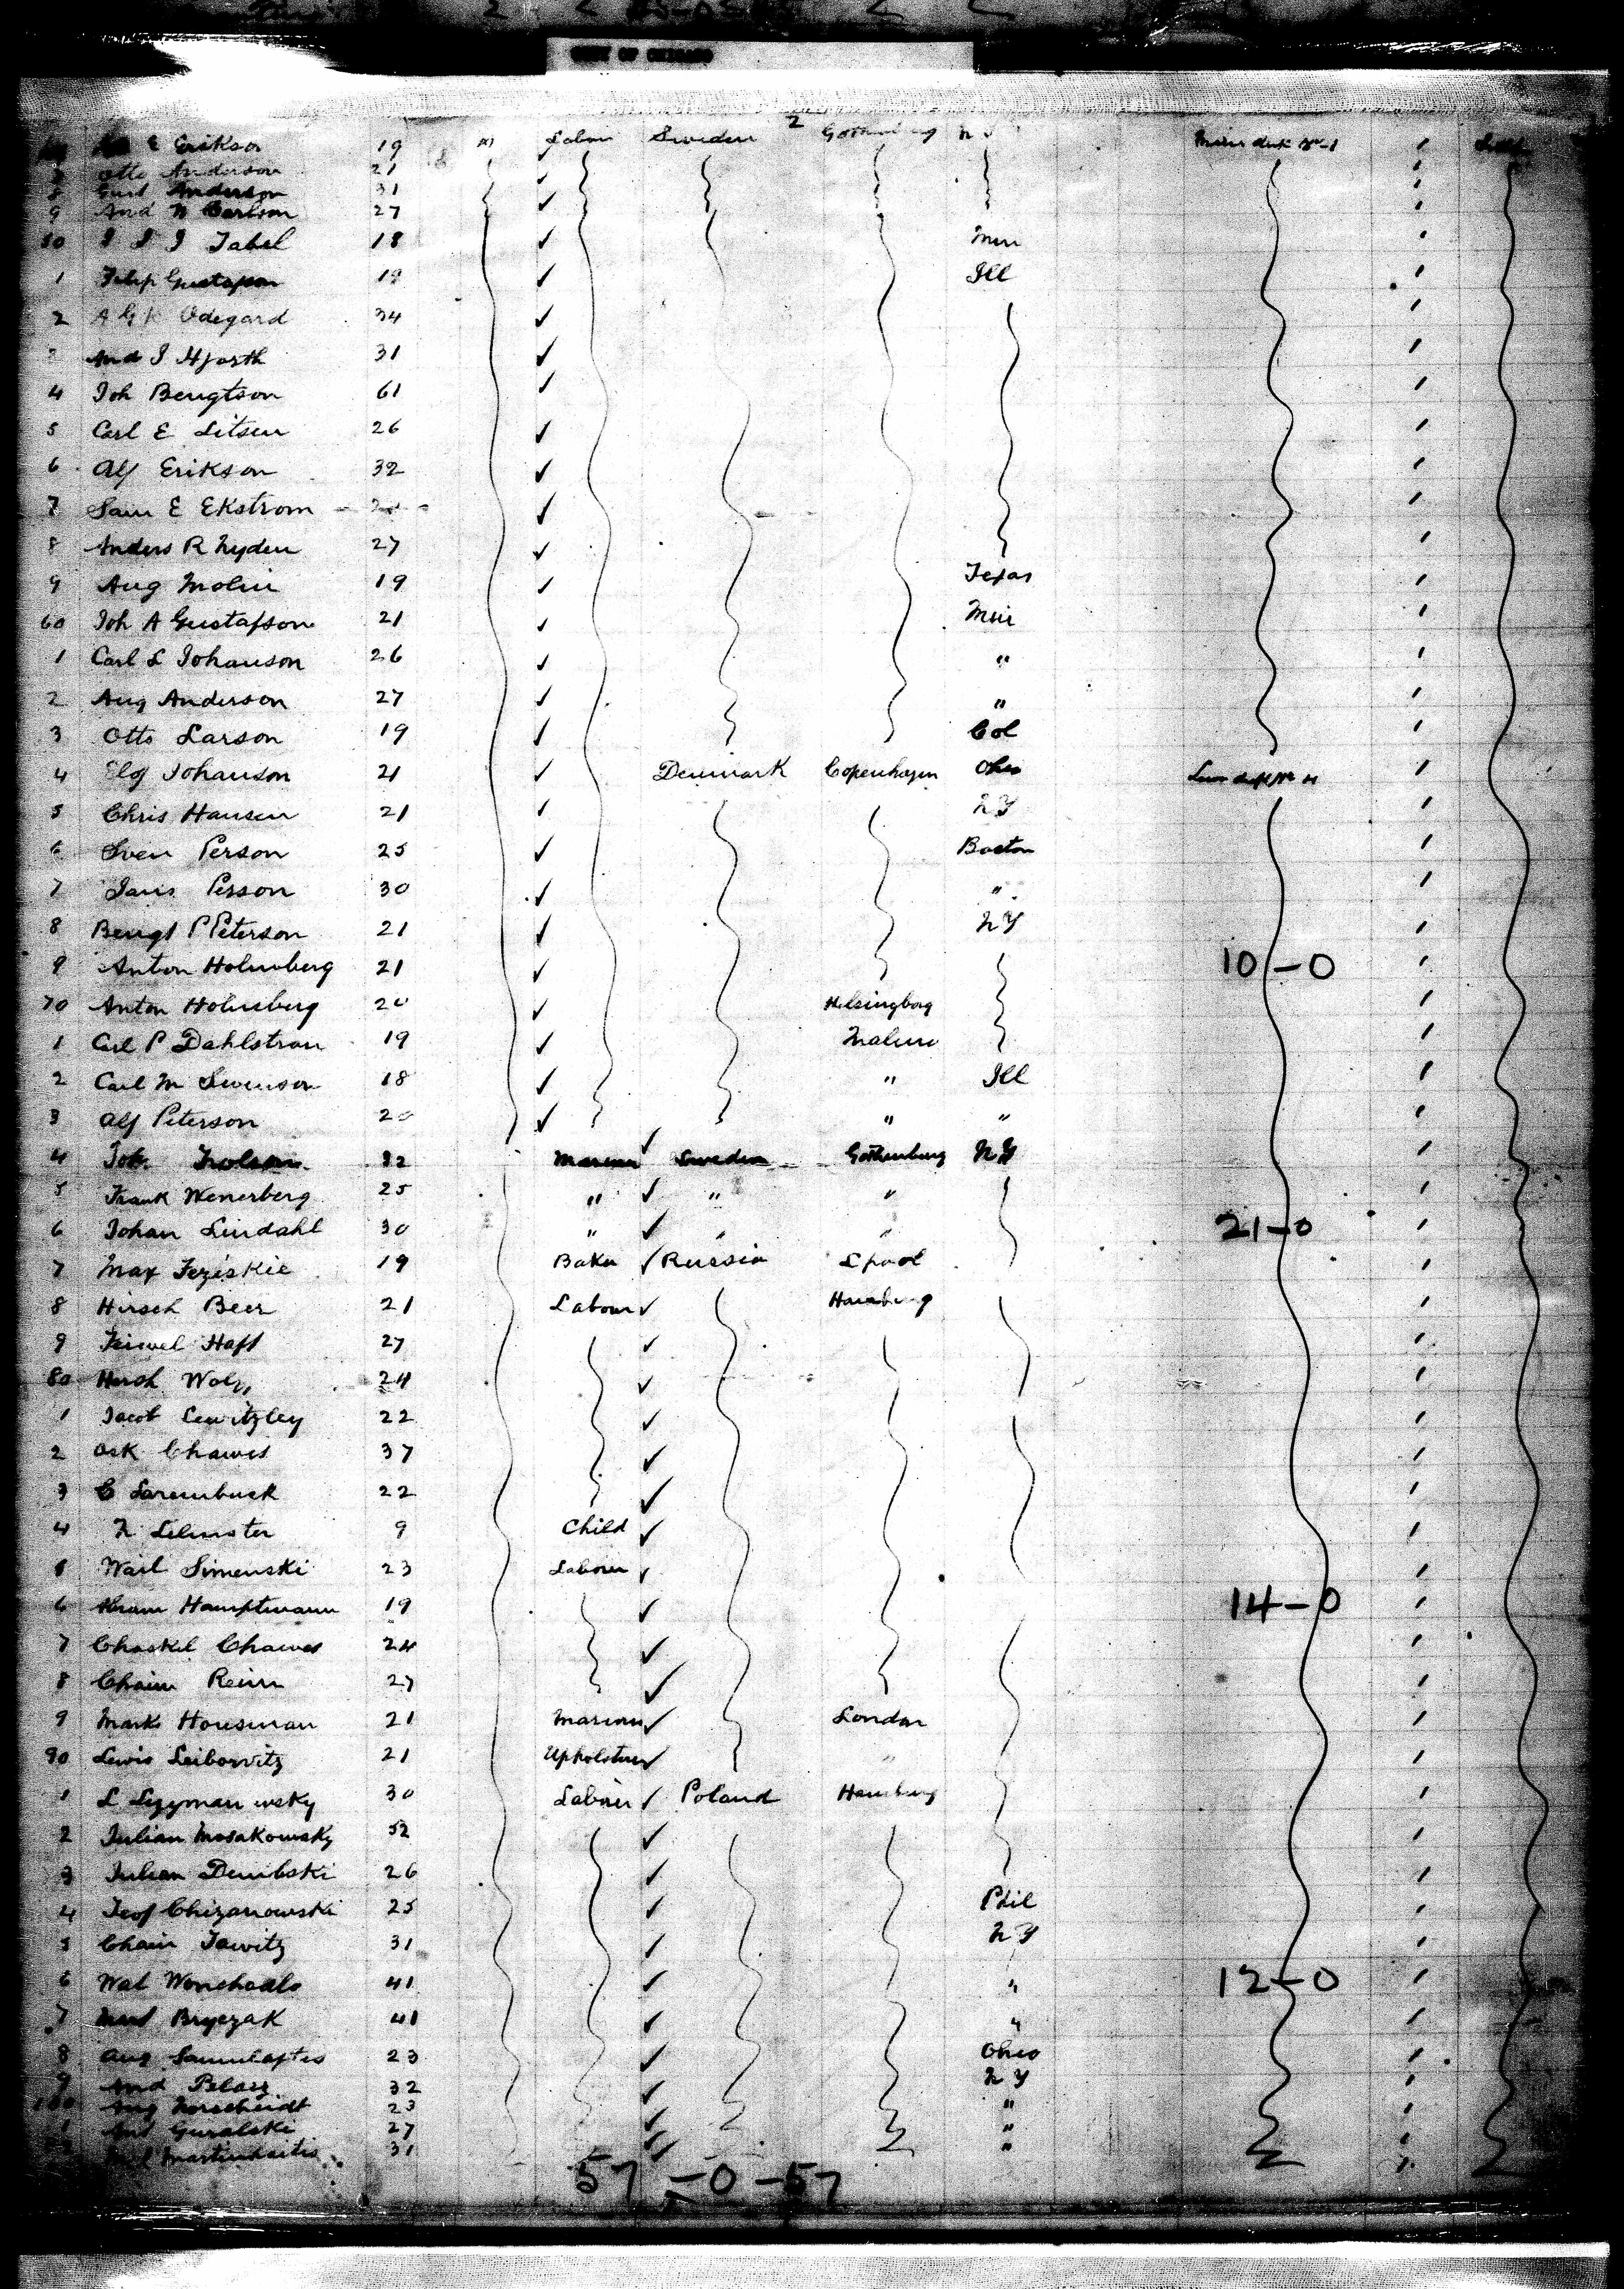 CITY OF CHICAGO
2
E Erikson 19 M Labour Sweden Gothenburg N Y
Otto Anderson 21
8 Gust Anderson 31
9 And N Carlson 27
50 I I J Tabel 18 Min
1 Filip Gustafson 19 Ill
2 A G K Odegard 34
3 And J Hjorth 31
4 Joh Bengtson 61
5 Carl E Litsen 26
6 Alf Erikson 32
7 Sam E Ekstrom
8 Anders R Nyden 27
9 Aug Molin 19 Texas
60 Joh A Gustafson 21 Min
1 Carl L Johanson 26 "
2 Aug Anderson 27 "
3 Otto Larson 19 Col
4 Elof Johanson 21 Denmark Copenhagen Ohio
5 Chris Hansen 21 N Y
6 Sven Person 25 Boston
7 Jans Person 30 "
8 Bengt P Peterson 21 N Y
9 Anton Holmberg 21 10-0
70 Anton Holmberg 20 Helsingborg
1 Carl P Dahlstrom 19 Malmo
2 Carl M Swenson 18 " Ill
3 Alf Peterson 20 " "
4 Joh 32 Mariner Sweden Gothenburg N Y
5 Frank Wenerberg 25 " " "
6 Johan Lindahl 30 " " " 21-0
7 Max Feziskie 19 Baker Russia Lpool
8 Hirsch Beer 21 Labour Hamburg
9 Feiwel Haft 27
80 Hersh 24
1 Jacob Lewitzley 22
2 Osk Chawes 37
3 C Sarembuck 22
4 N Lelmster 9 Child
5 Wail Simenski 23 Labour
6 Abram Hamptmann 19 14-0
7 Chaskel Chawes 24
8 Chaim Reim 27
9 Marks Housman 21 Mariner London
90 Lewis Leibowitz 21 Upholsterer "
1 L Szymanowsky 30 Labour Poland Hamburg
2 Julian Mosakowsky 52
3 Julian Dembski 26
4 Teof Chizanowski 25 Phil
5 Chain Jawitz 31 N Y
6 Wal 41 " 12-0
7 Bryczak 41 "
8 Aug 23 Ohio
9 And Pelasz 32 N Y
100 Aug Norscheidt 23 "
1 And Guralski 27 "
Martinkaitis 31 "
57-0-57